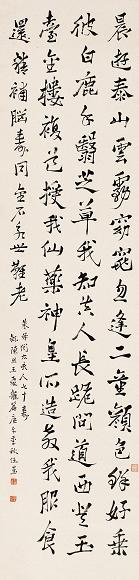 晨遊泰山雲霧窈窕忽逢二童顏色鮮好乘
彼白鹿手翳芝草我知真人長跪問道西登玉
臺金樓複道授我仙藥神皇所造教我服食
還精補腦壽同金石永世難老
大人七十壽
陳思王飛龍篇